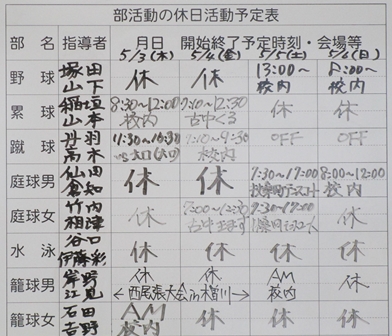 部活動の休日活動予定表
部 名 指導者 月日 開始終了予定時刻・会場等
5/3(木) 5/4(金) 5/5(土) 5/6(日)
野 球 塚田 山下 休 休 13:00~ 校内 8:00~ 校内
塁 球 稲垣 山本 8:30~12:00 校内 休 休
蹴 球 丹羽 高木 校内 OFF OFF
庭球男 仙田 倉知 休 休 7:30~17:00 8:00~12:00 校内
庭球女 竹内 相津 休 休
水 泳 谷口 伊藤彩 休 休 休 休
籠球男 岸野 江見 休 休 AM 校内 休
←西尾張大会in木曽川→
籠球女 石田 吉野 AM 校内 休 休 休